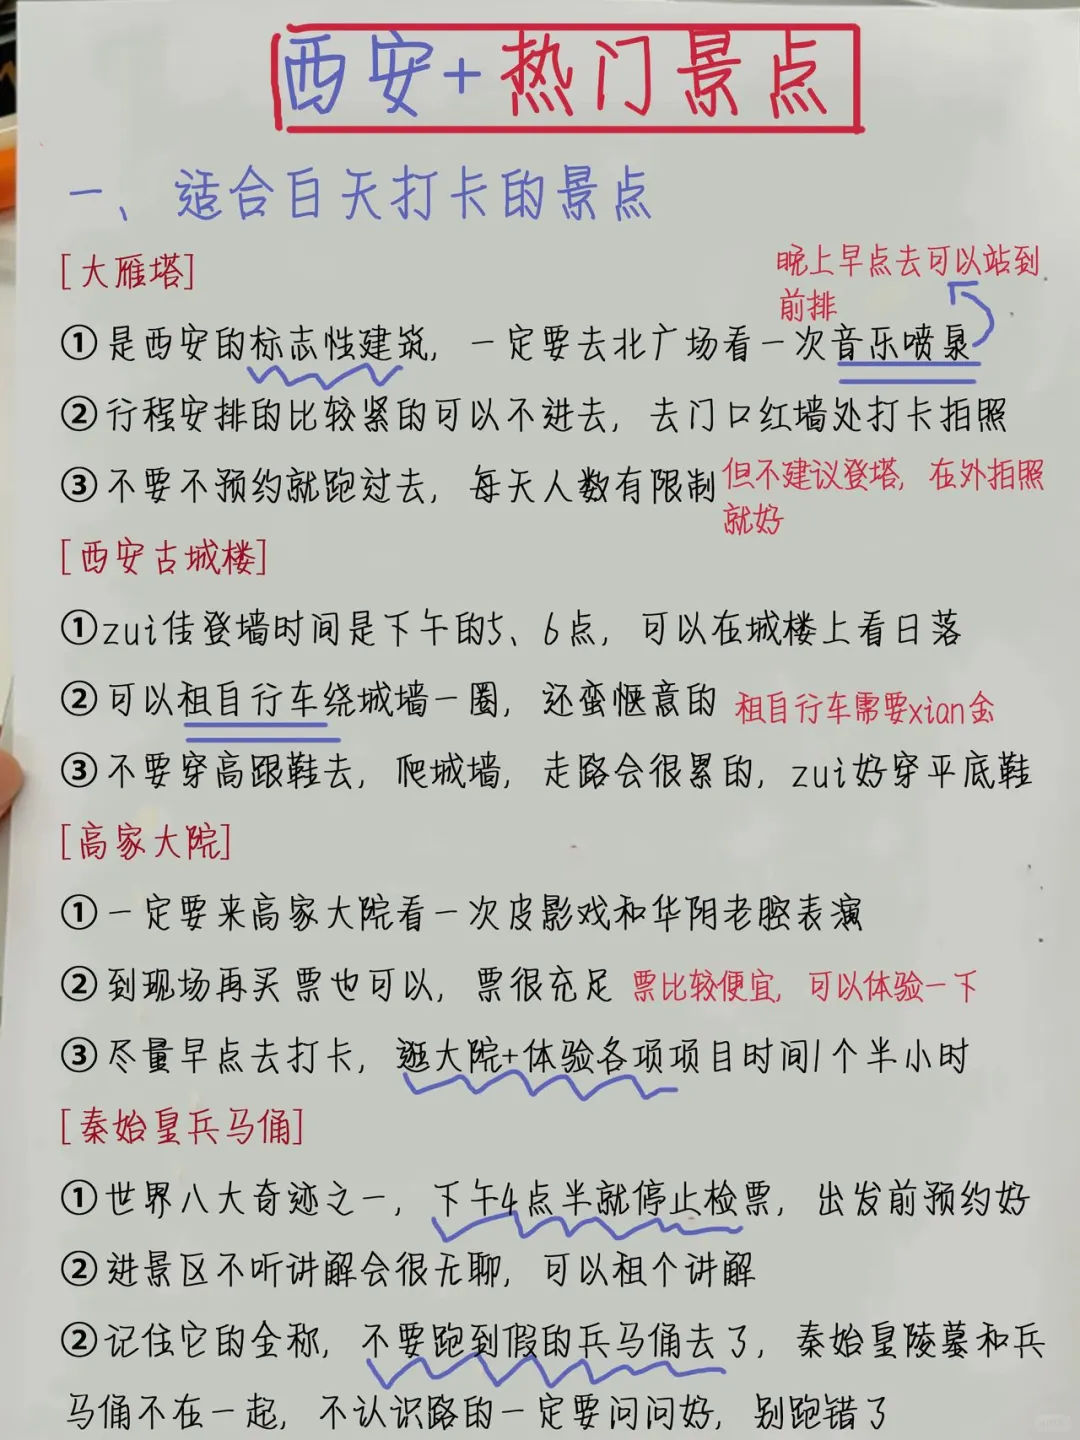 西安+热门景点
一、适合白天打卡的景点
[大雁塔]
晚上早点去可以站到
前排
①是西安的标志性建筑，一定要去北广场看一次音乐喷泉
②行程安排的比较紧的可以不进去，去门口红墙处打卡拍照
③不要不预约就跑过去，每天人数有限制
但不建议登塔，在外拍照
就好
[西安古城楼]
①zui佳登墙时间是下午的5、6点，可以在城楼上看日落
②可以租自行车绕城墙一圈，还蛮惬意的 租自行车需要xian金
③不要穿高跟鞋去，爬城墙，走路会很累的，zui好穿平底鞋
[高家大院]
①一定要来高家大院看一次皮影戏和华阴老腔表演
②到现场再买票也可以，票很充足 票比较便宜，可以体验一下
③尽量早点去打卡，逛大院+体验各项项目时间1个半小时
[秦始皇兵马俑]
①世界八大奇迹之一，下午4点半就停止检票，出发前预约好
②进景区不听讲解会很无聊，可以租个讲解
②记住它的全称，不要跑到假的兵马俑去了，秦始皇陵墓和兵
马俑不在一起，不认识路的一定要问问好，别跑错了